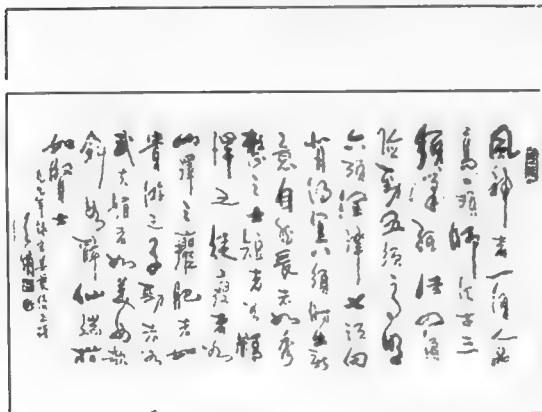 風神者一須人品
高二須師法古三
須筆紙佳四須
險勁五須高明
六須潤澤七須向
背得宜八須時出新
意自然長者如秀
整之士短者如精
悍之徒瘦者如
山澤之癯肥者如
貴遊之子勁者如
武夫媚者如美女欹
斜如醉仙端楷
如賢士